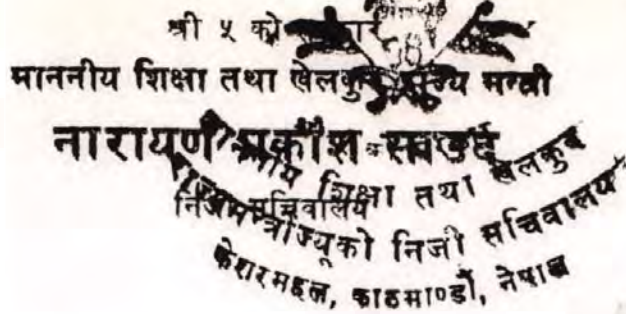 श्री ५ को सरकार
माननीय शिक्षा तथा खेलकुद राज्य मन्त्री
नारायण प्रकाश सउद
निजी सचिवालय
शिक्षा तथा खेलकुद
राज्यमन्त्रीज्यूको निजी सचिवालय
केशरमहल, काठमाण्डौं, नेपाल